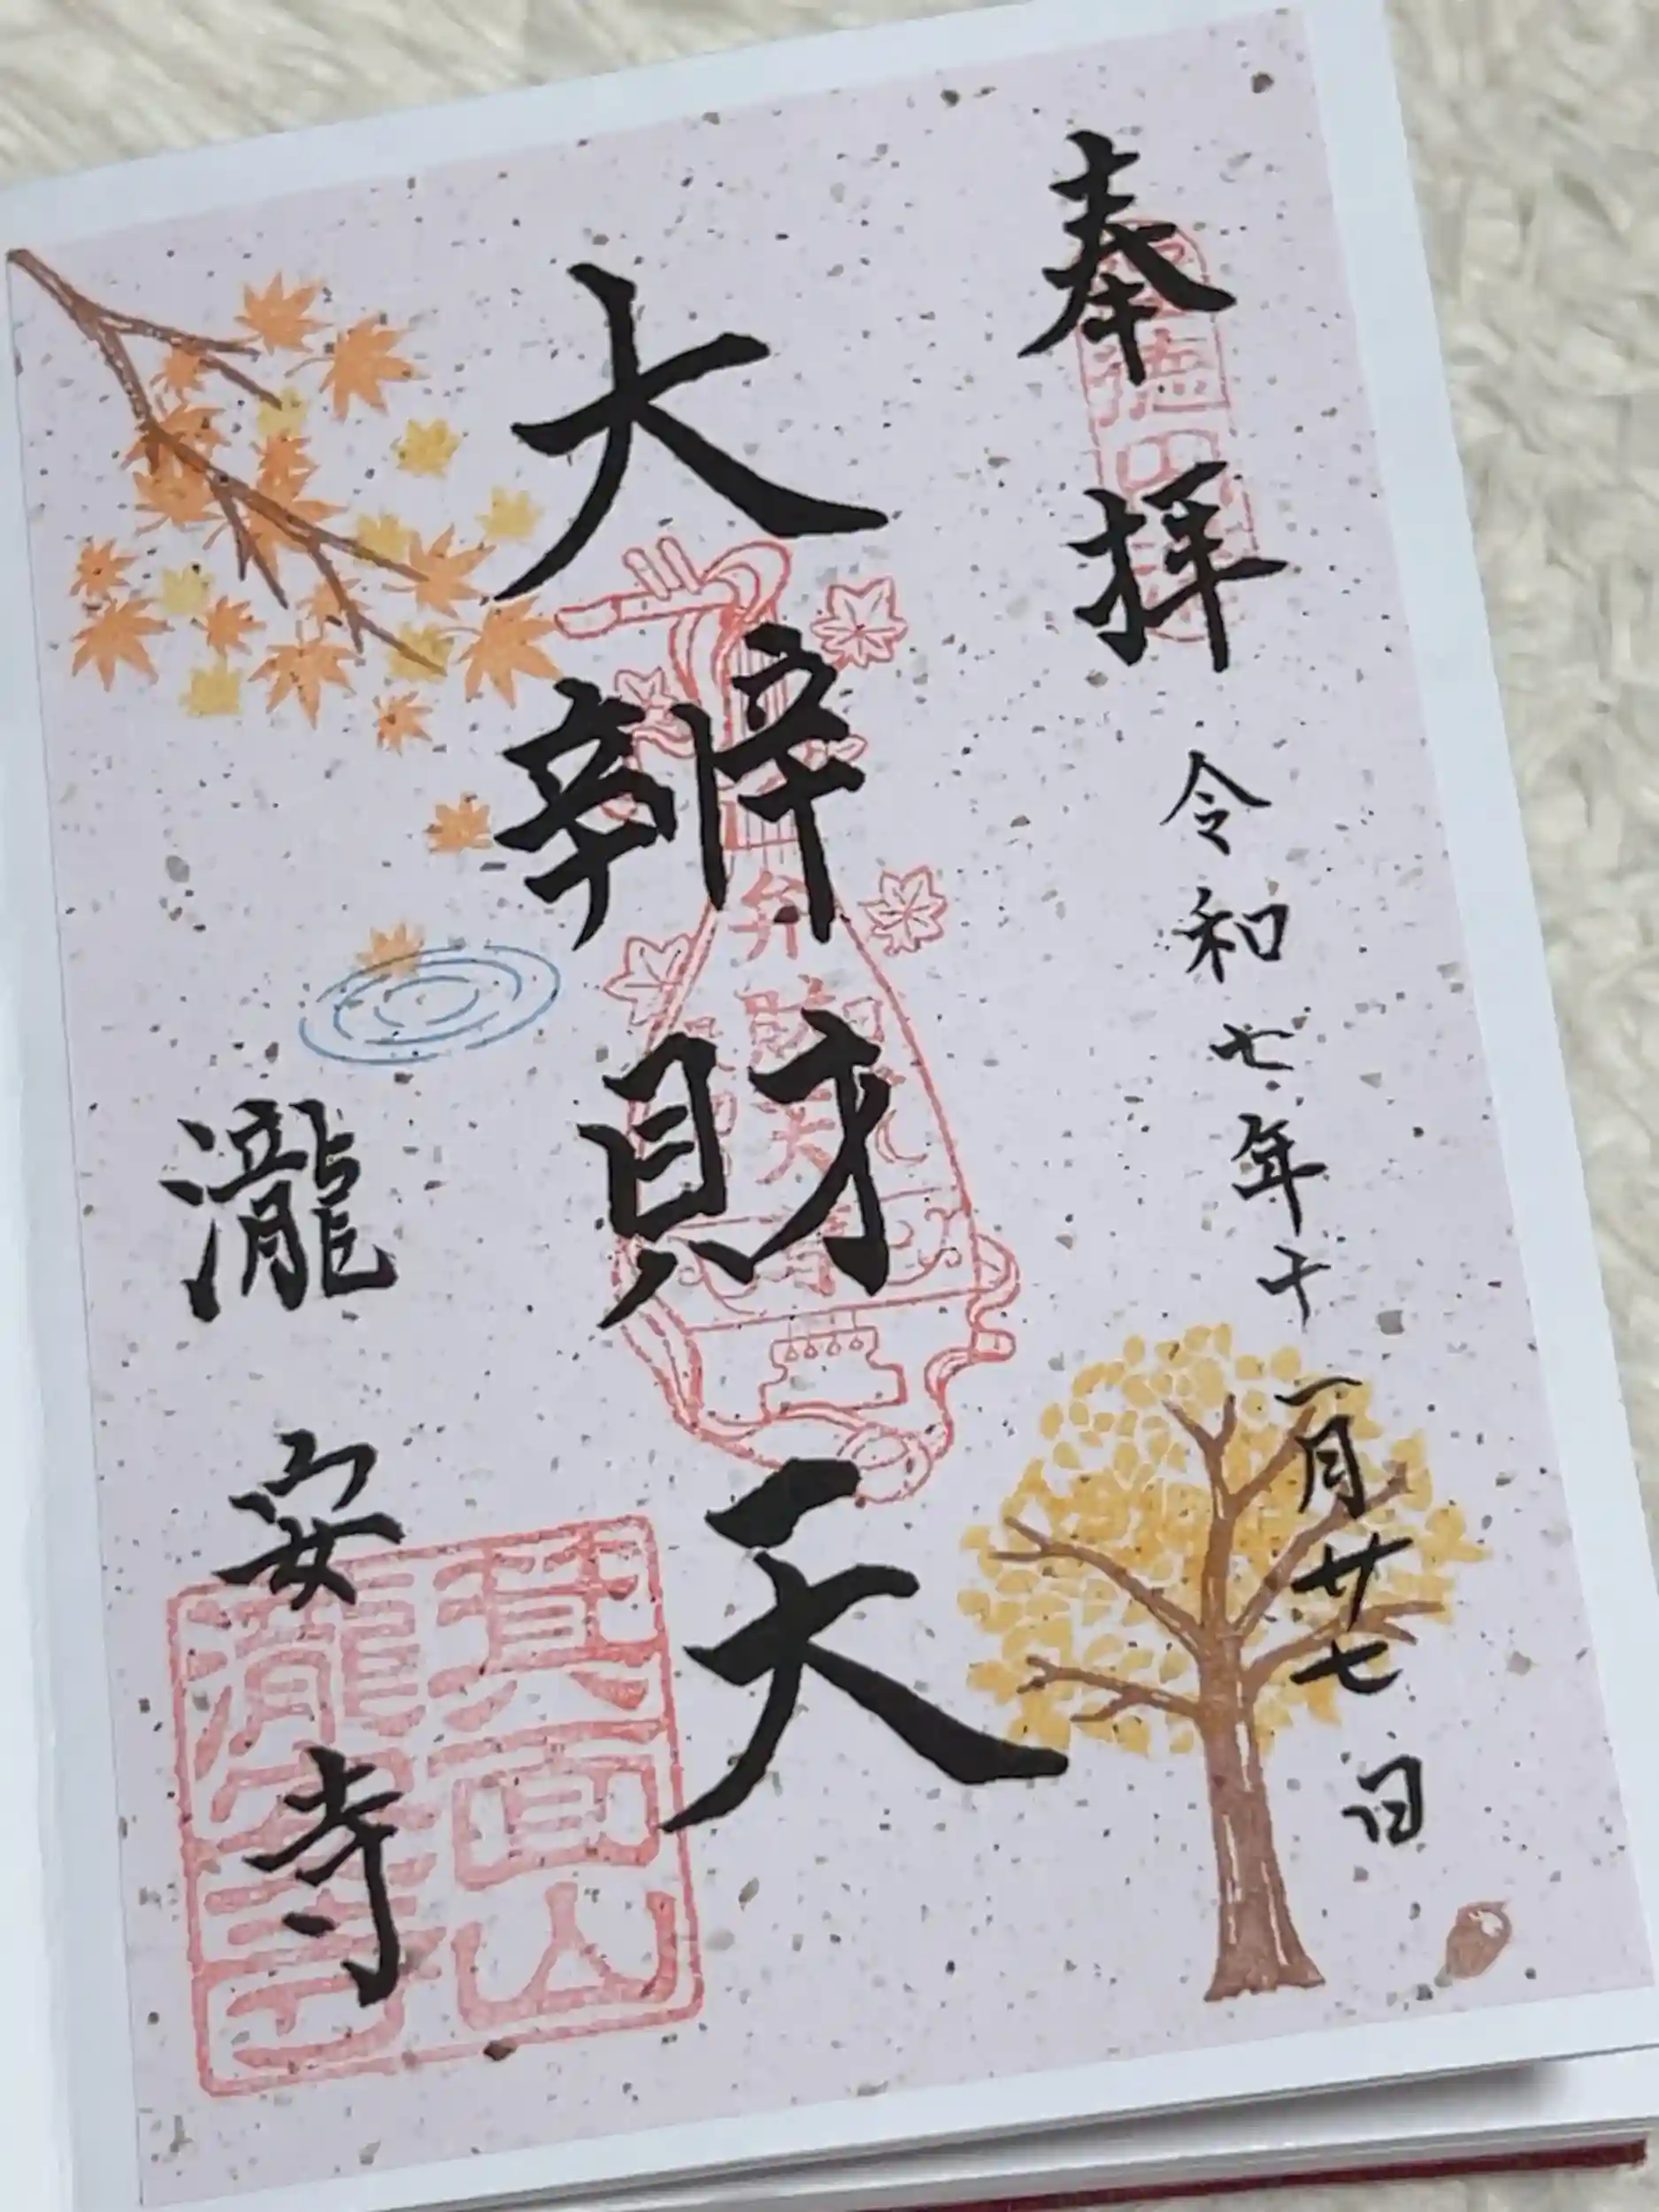 奉拝
令和七年十一月廿七日
大辨財天
弁財天
瀧安寺
箕面山
瀧安寺